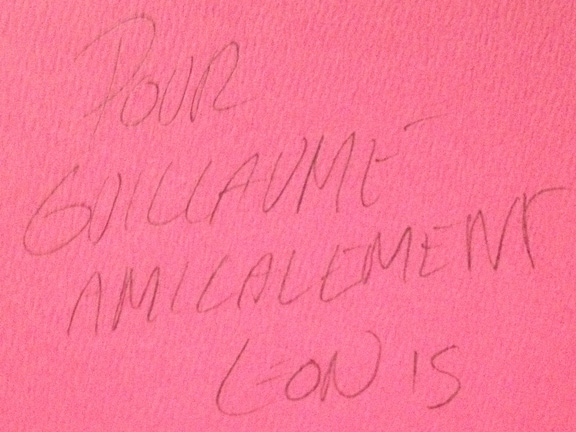 POUR
GUILLAUME
AMICALEMENT
LEON 15